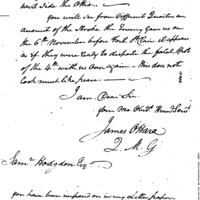 West Side the Ohio.
you will see from different Quarters an
amount of the Stroke the Enemy gave us on
the 6th November before Fort St Clair it appears
as if they were likely to dispute the fatal spot
of the 4th with us once again - this does not
look much like peace
I am Dear Sir
your Mo. Obdt. Humb Servt
James OHara
Q. M. G
Saml Hodgdon Esqr
you have been imposed on in my Letter paper